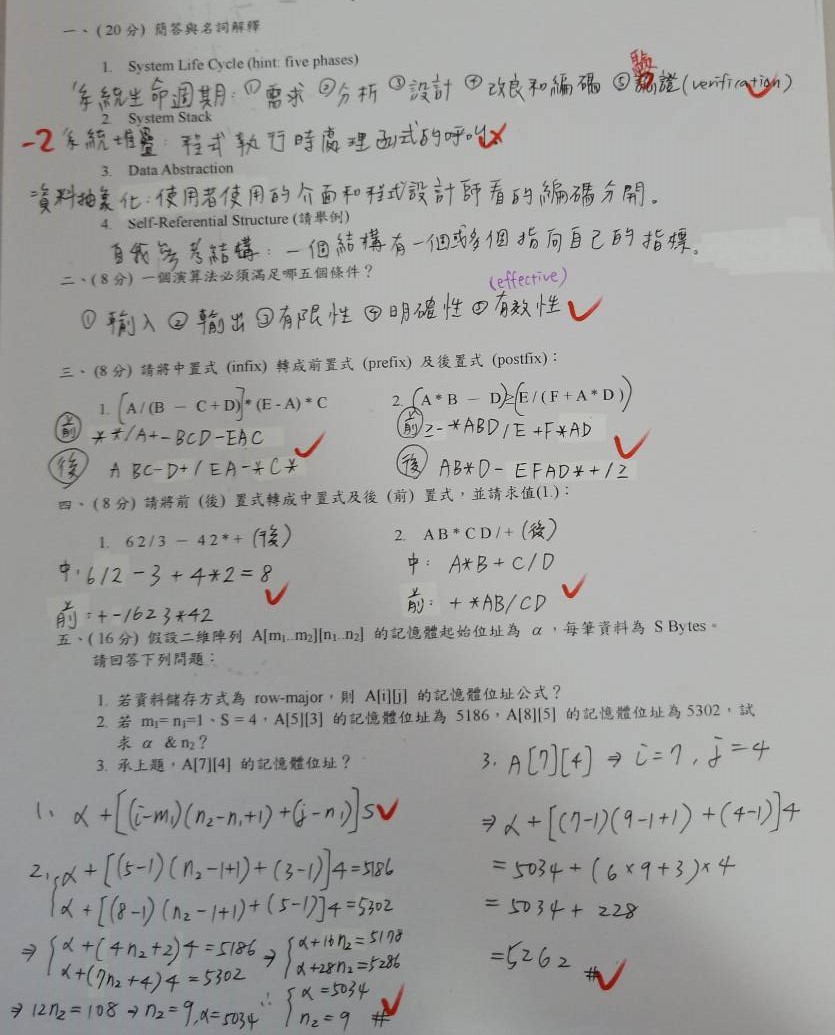 一、(20 分) 簡答與名詞解釋
1. System Life Cycle (hint: five phases)
系統生命週期:①需求 ②分析 ③設計 ④改良和編碼 ⑤驗證(verification)
2. System Stack
-2 系統堆疊:程式執行時處理函式的呼叫
3. Data Abstraction
資料抽象化:使用者使用的介面和程式設計師看的編碼分開。
4. Self-Referential Structure (請舉例)
自我參考結構:一個結構有一個或多個指向自己的指標。
二、(8 分) 一個演算法必須滿足哪五個條件?
(effective)
①輸入 ②輸出 ③有限性 ④明確性 ⑤有效性
三、(8 分) 請將中置式 (infix) 轉成前置式 (prefix) 及後置式 (postfix):
1. [A/(B − C+D)]*(E-A)*C
2. (A*B − D)≥(E/(F+A*D))
前 **/A+-BCD-EAC
前 ≥-*ABD/E+F*AD
後 A BC-D+/EA-*C*
後 AB*D-EFAD*+/≥
四、(8 分) 請將前 (後) 置式轉成中置式及後 (前) 置式,並請求值(1.):
1. 62/3 − 42*+ (後)
2. AB*CD/+ (後)
中:6/2-3+4*2=8
中:A*B+C/D
前:+-/623*42
前:+*AB/CD
五、(16 分) 假設二維陣列 A[m₁..m₂][n₁..n₂] 的記憶體起始位址為 α,每筆資料為 S Bytes。
請回答下列問題:
1. 若資料儲存方式為 row-major,則 A[i][j] 的記憶體位址公式?
2. 若 m₁= n₁=1、S = 4,A[5][3] 的記憶體位址為 5186,A[8][5] 的記憶體位址為 5302,試
求 α & n₂?
3. 承上題,A[7][4] 的記憶體位址?
1. α+[(i-m₁)(n₂-n₁+1)+(j-n₁)]S
2. α+[(5-1)(n₂-1+1)+(3-1)]4=5186
α+[(8-1)(n₂-1+1)+(5-1)]4=5302
⇒ α+(4n₂+2)4=5186 ⇒ α+16n₂=5178
α+(7n₂+4)4=5302 α+28n₂=5286
⇒ 12n₂=108 → n₂=9, α=5034 ∴ α=5034
n₂=9 #
3. A[7][4] ⇒ i=7, j=4
⇒ α+[(7-1)(9-1+1)+(4-1)]4
=5034+(6×9+3)×4
=5034+228
=5262 #